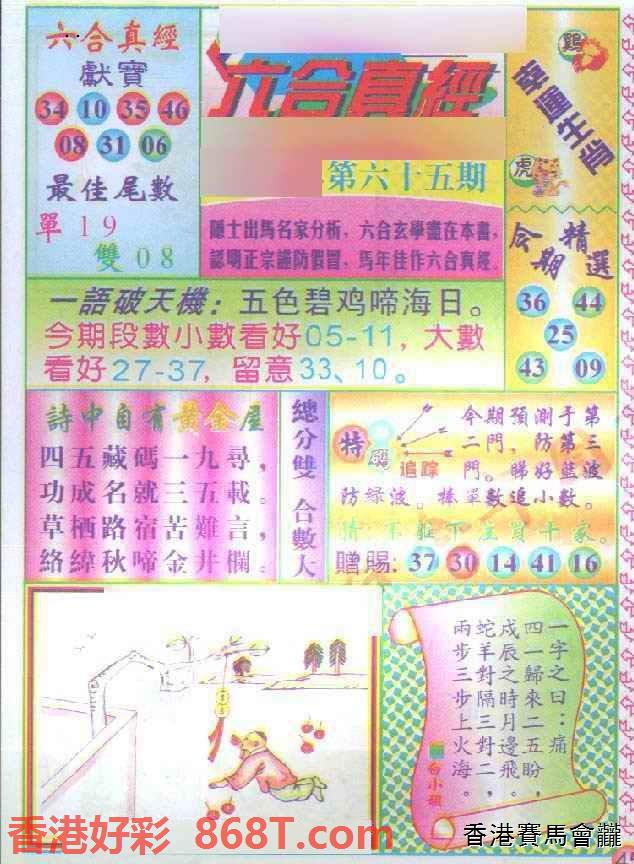 六合真經
獻寶
34 10 35 46
08 31 06
最佳尾數
單 1 9
雙 0 8
六合真經
第六十五期
隱士出馬名家分析，六合玄學盡在本書，
認明正宗謹防假冒，馬年佳作六合真經。
鷄
幸運生肖
虎
今期精選
36 44
25
43 09
一語破天機：五色碧鸡啼海日。
今期段數小數看好05-11，大數
看好27-37，留意33、10。
詩中自有黃金屋
四五藏碼一九尋，
功成名就三五載。
草栖路宿苦難言，
絡緯秋啼金井欄。
總分雙 合數大
特
追踪
今期預測于第
二門，防第三
門。睇好藍波
防绿波。搏單數追小數。
贈賜: 37 30 14 41 16
一字之曰：痛
四一歸來二五盼，
戌辰之時月邊飛。
蛇羊對隔三對二，
兩步三步上火海。
香港好彩 868T.com
香港賽馬會